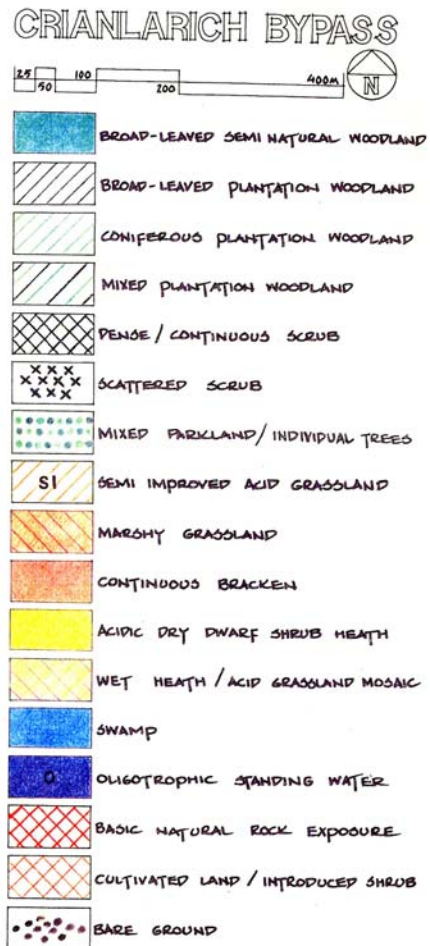 CRIANLARICH BYPASS
25 50 100 200 400M
N
BROAD-LEAVED SEMI NATURAL WOODLAND
BROAD-LEAVED PLANTATION WOODLAND
CONIFEROUS PLANTATION WOODLAND
MIXED PLANTATION WOODLAND
DENSE/CONTINUOUS SCRUB
SCATTERED SCRUB
MIXED PARKLAND/INDIVIDUAL TREES
SI SEMI IMPROVED ACID GRASSLAND
MARSHY GRASSLAND
CONTINUOUS BRACKEN
ACIDIC DRY DWARF SHRUB HEATH
WET HEATH/ACID GRASSLAND MOSAIC
SWAMP
O OLIGOTROPHIC STANDING WATER
BASIC NATURAL ROCK EXPOSURE
CULTIVATED LAND/INTRODUCED SHRUB
BARE GROUND